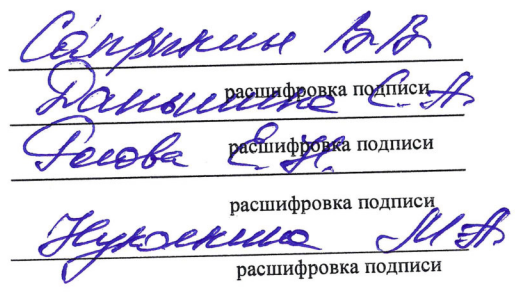 Саприкин В.В
расшифровка подписи
Даньшина С.А.
расшифровка подписи
Рогова Е.Н.
расшифровка подписи
М.А.
расшифровка подписи